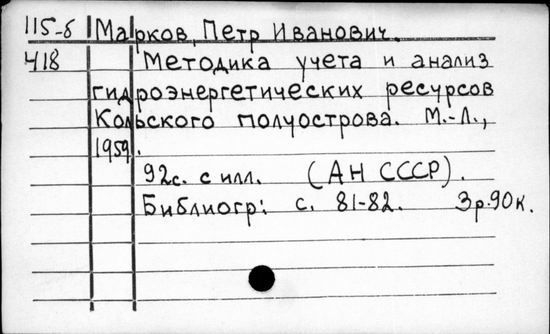 115-б Марков, Петр Иванович.
418 Методика учета и анализ
гидроэнергетических ресурсов
Кольского полуострова. М.-Л.,
1959.
92с. с илл. (АН СССР).
Библиогр: с. 81-82. 3р.90к.